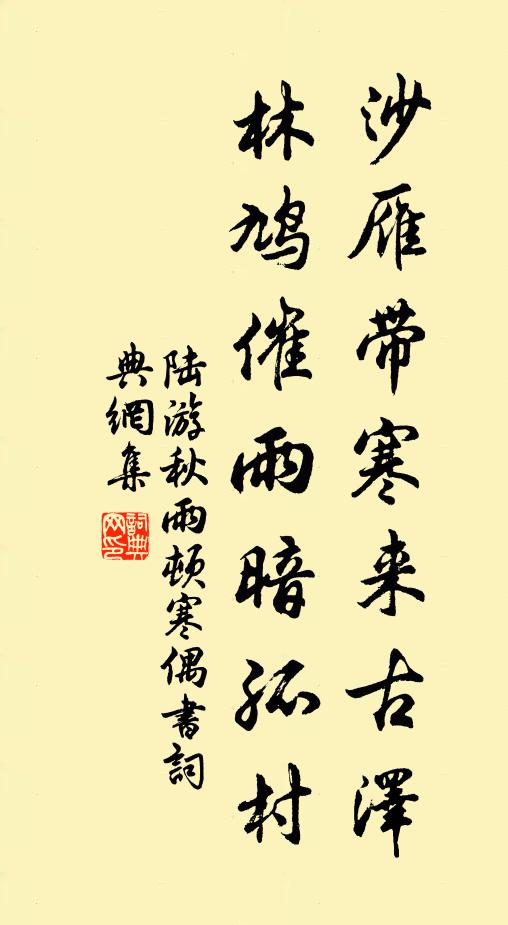 沙雁带寒来古澤
林鸠催雨暗孤村
陆游秋雨頓寒偶書詞
典網集
詞典網印